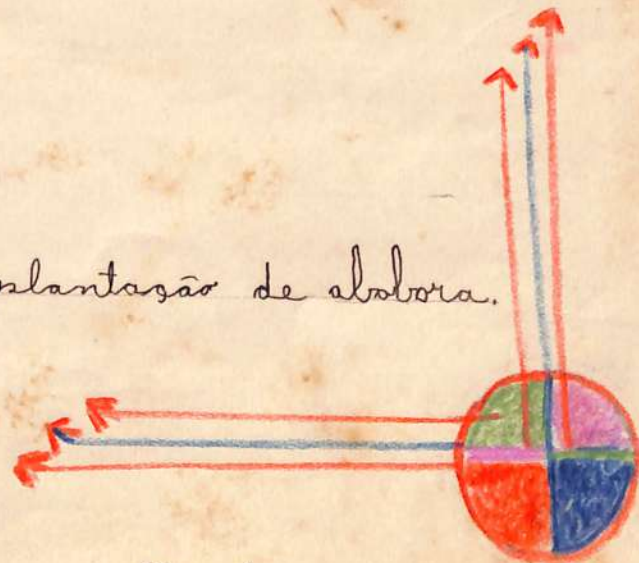 plantação de abobora.